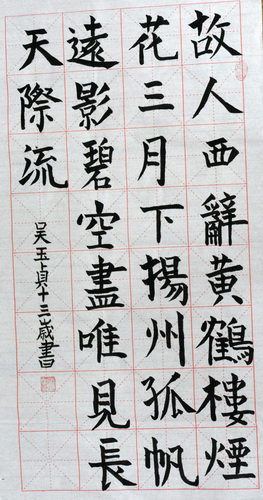 故人西辭黃鶴樓煙
花三月下揚州孤帆
遠影碧空盡唯見長
天際流
吳玉貞十三歲書